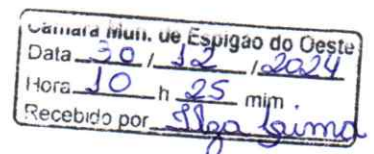 Camara Mun. de Espigão do Oeste
Data 30 / 12 / 2024
Hora 10 h 25 mim
Recebido por Ilza Lima